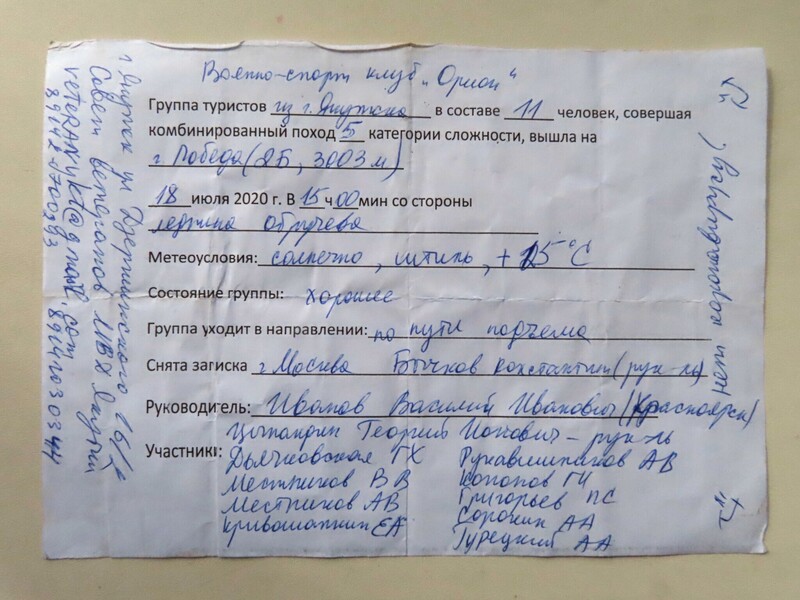 Военно-спорт клуб „Орион“
Группа туристов из г. Якутска в составе 11 человек, совершая
комбинированный поход 5 категории сложности, вышла на
г Победа (2Б, 3003 м)
18 июля 2020 г. В 15 ч 00 мин со стороны
ледника обручева
Метеоусловия: солнечно, штиль, +15°С
Состояние группы: хорошее
Группа уходит в направлении: по пути подъема
Снята записка г Москва Бычков Константин (рук-ль)
Руководитель: Иванов Василий Иванович (Красноярск)
Цыпандин Георгий Ионович - рук-ль
Участники:
Дьячковская ГХ
Местников В В
Местников АВ
Кривошапкин ЕА
Рукавишников АВ
Кононов ГИ
Григорьев ПС
Сорокин АА
Турецкий АА
г Якутск ул Дзержинского
Совет ветеранов МВД Якутии
89142030344
нет коронавирусу!